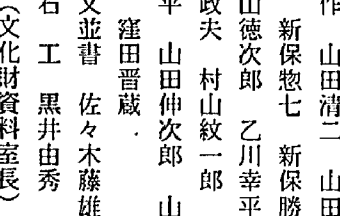 作　山田清二　山田
新保惣七　新保勝
山徳次郎　乙川幸平
政夫　村山紋一郎
平　山田伸次郎　山
窪田晋蔵
文並書　佐々木藤雄
石　工　黒井由秀
（文化財資料室長）